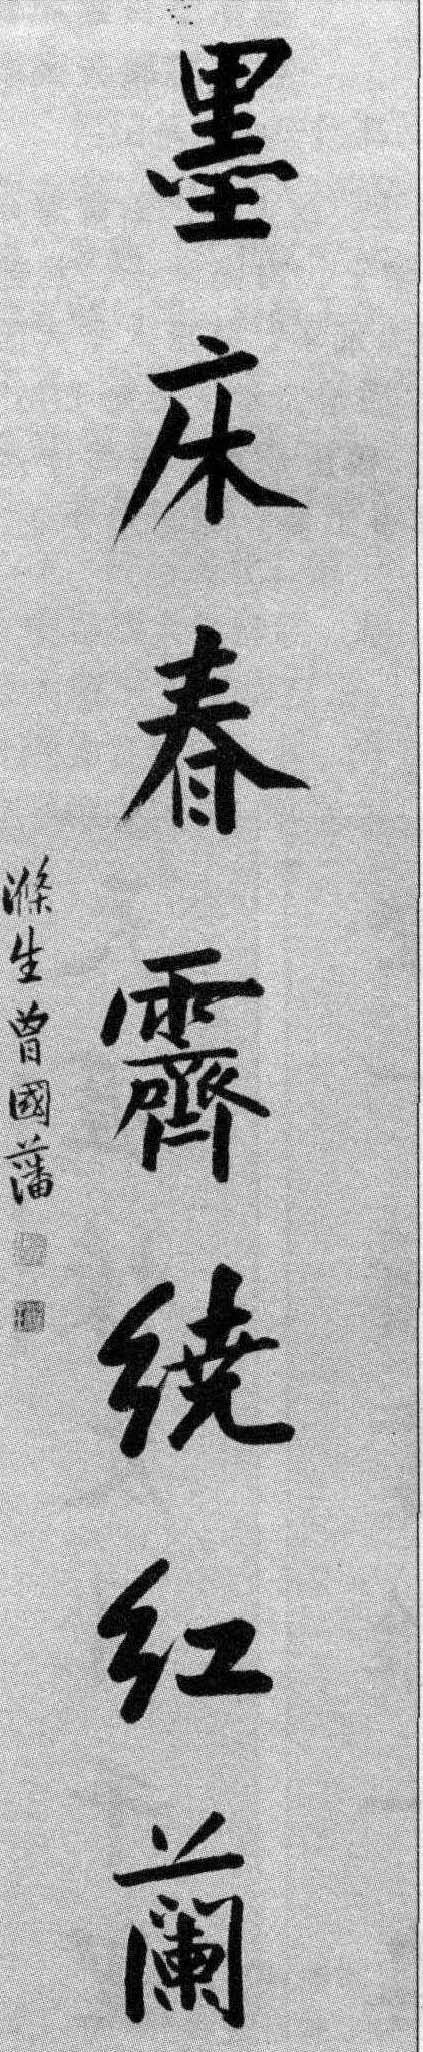 墨床春霽繞紅蘭
滌生曾國藩